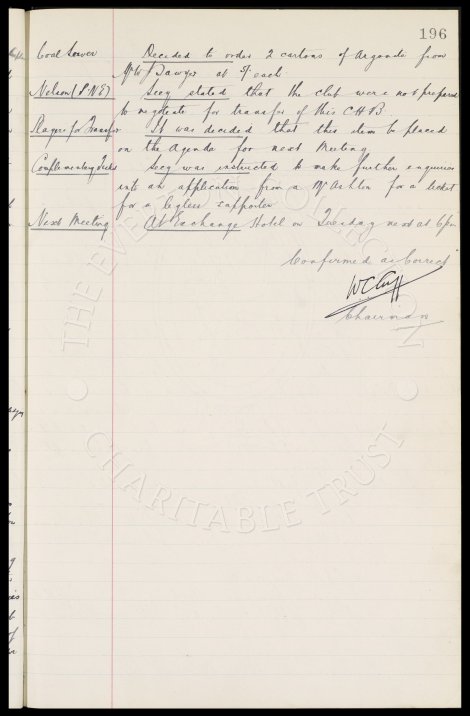 196
Coal Saver Decided to order 2 cartons of Argonda from
Mr W J Sawyer at 5/- each
Nelson (P.N.E) Secy stated that the club were not prepared
to negotiate for transfer of this C.H.B.
Players for Transfer It was decided that this item be placed
on the Agenda for next Meeting
Complimentary Ticket Secy was instructed to make further enquiries
into an application from a Mr Ashton for a ticket
for a legless supporter
Next Meeting At Exchange Hotel on Tuesday next at 6pm
Confirmed as Correct
W C Cuff
Chairman
THE EVERTON COLLECTION
CHARITABLE TRUST